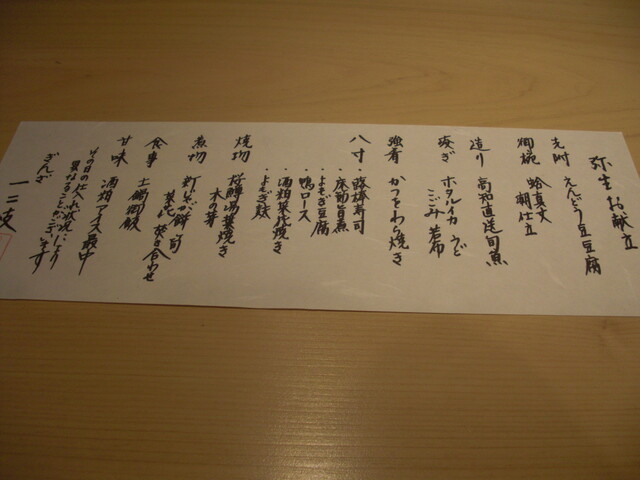 弥生お献立
先附 えんどう豆豆腐
椀 蛤真丈
潮仕立
造り 高知直送旬魚
凌ぎ ホタルイカ うど
こごみ 若布
強肴 かつをわら焼き
八寸 ・ 棒寿司
・ 旨煮
・鴨ロース
・よもぎ豆腐
・酒粕 焼き
・よもぎ麸
焼物 桜鱒 焼き
木の芽
煮物 筍
合わせ
食事 土鍋御飯
甘味 酒粕アイス最中
その日の仕入れ状況により
異なることがございます
ぎんざ
一二岐